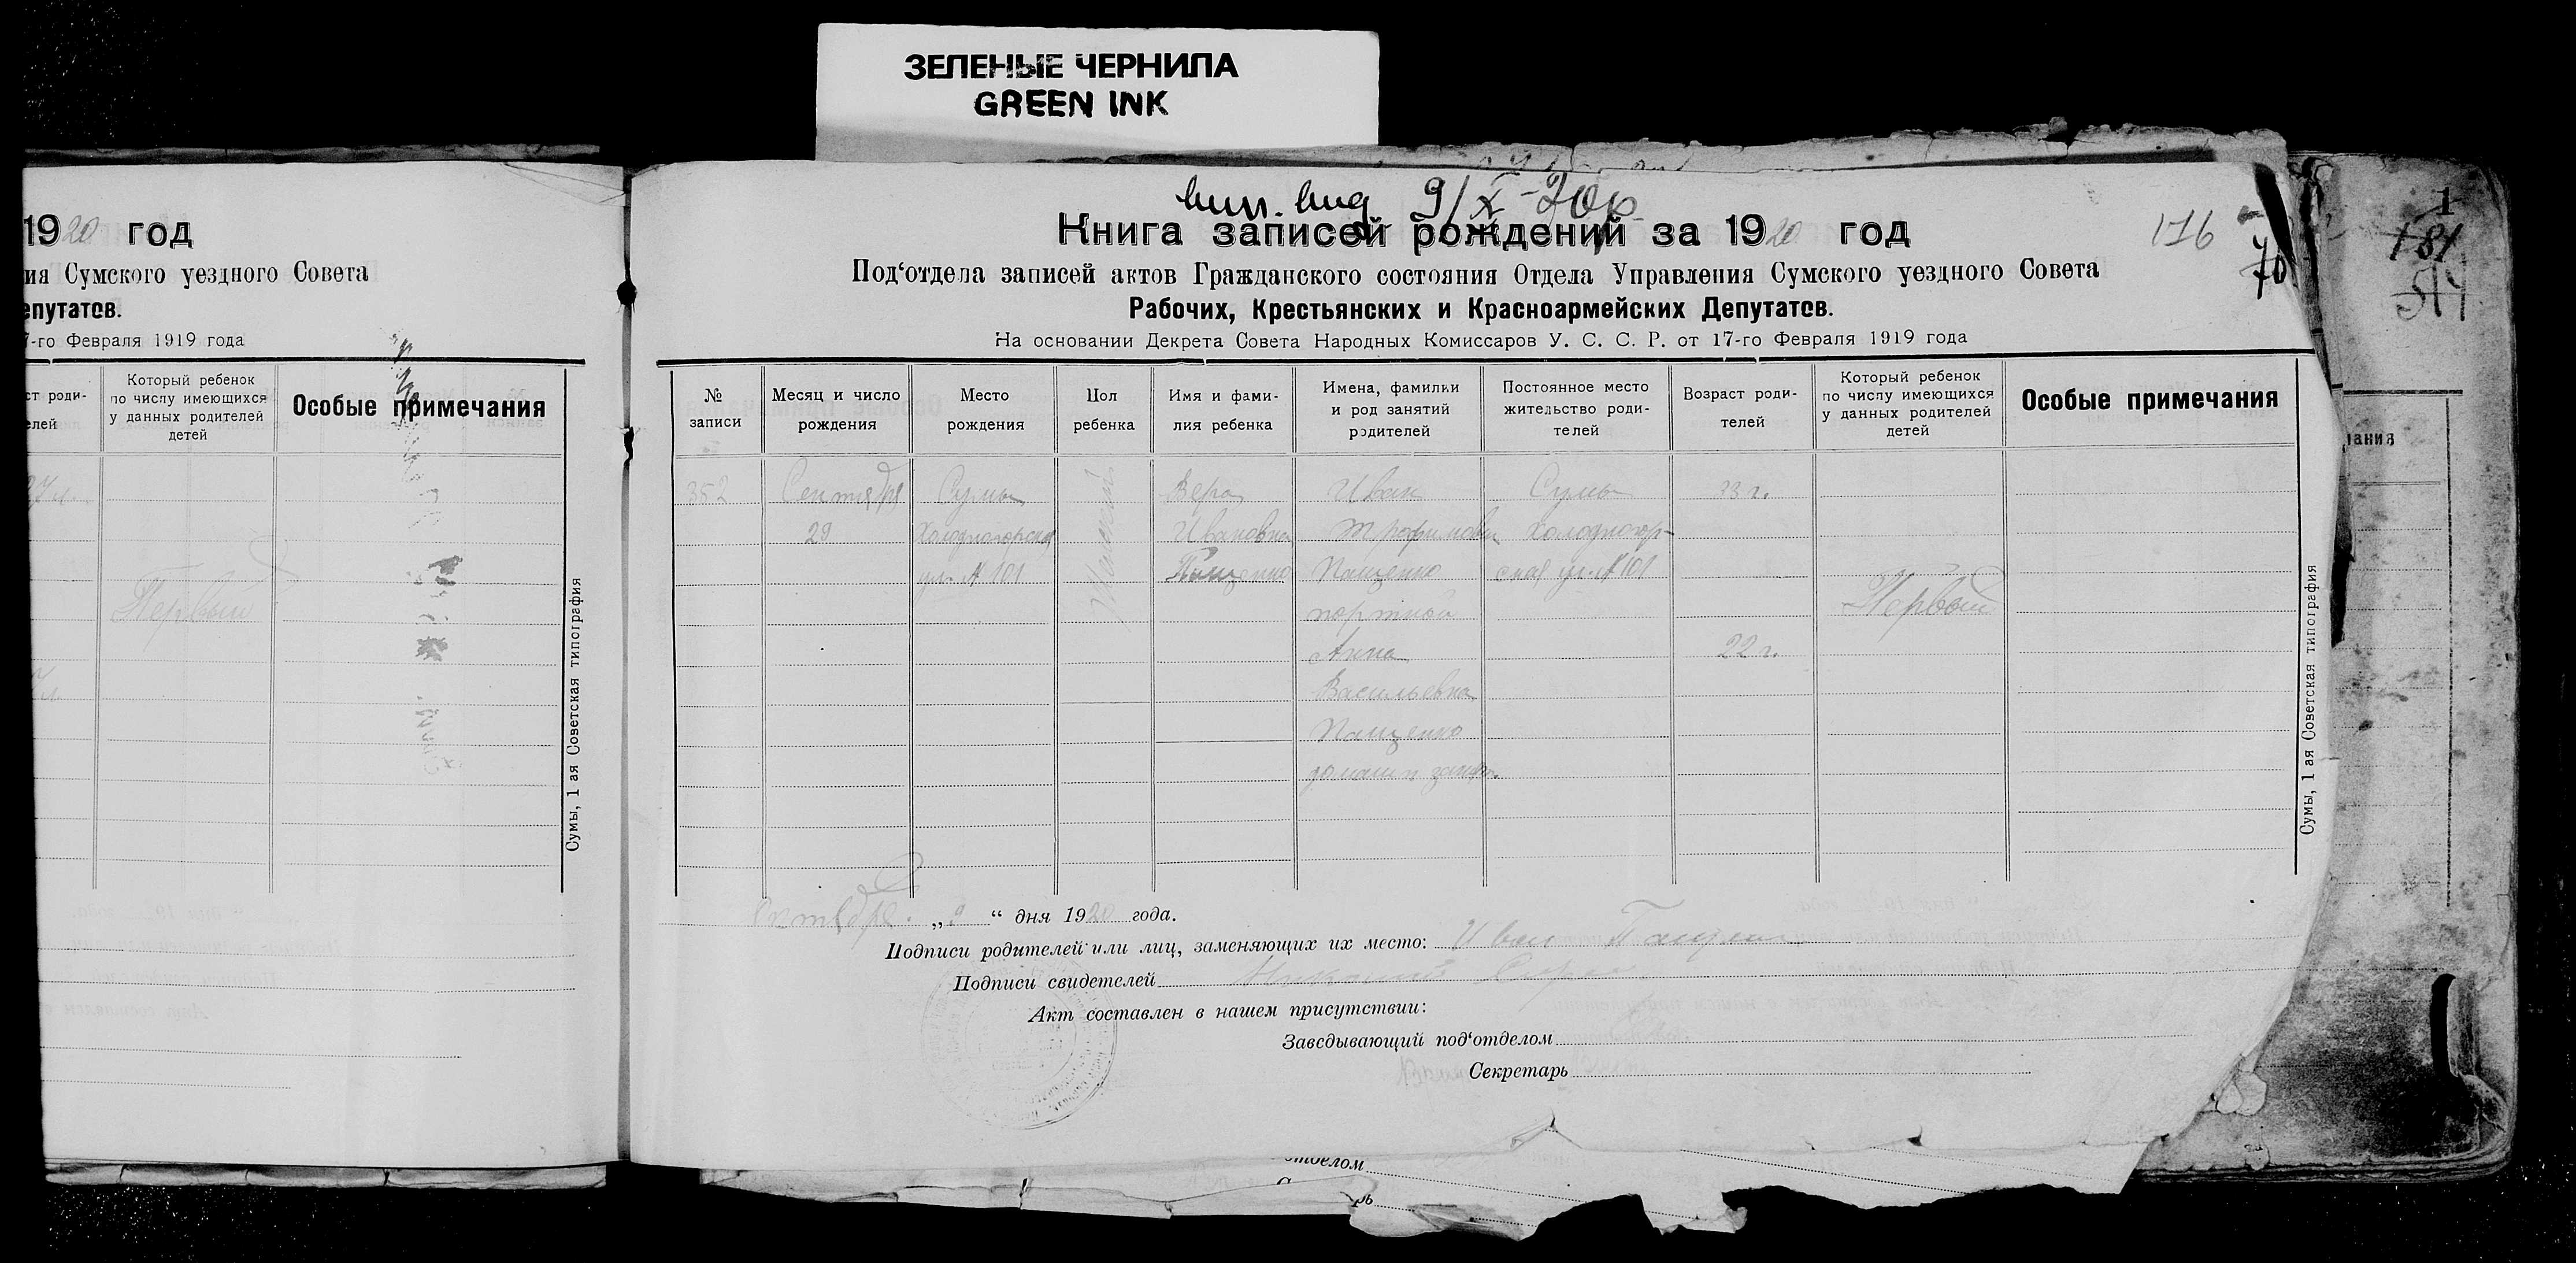 ЗЕЛЕНЫЕ ЧЕРНИЛА
GREEN INK
1920 год
ия Сумского уездного Совета
епутатов.
7-го Февраля 1919 года
ст роди-
елей
Который ребенок
по числу имеющихся
у данных родителей
детей
Особые примечания
27 л.
Первый
Сумы, 1 ая Советская типография
9/X-20
176
70
Книга записей рождений за 1920 год
Под‘отдела записей актов Гражданского состояния Отдела Управления Сумского уездного Совета
Рабочих, Крестьянских и Красноармейских Депутатов.
На основании Декрета Совета Народных Комиссаров У. С. С. Р. от 17-го Февраля 1919 года
№
записи
Месяц и число
рождения
Место
рождения
Пол
ребенка
Имя и фами-
лия ребенка
Имена, фамилии
и род занятий
родителей
Постоянное место
жительство роди-
телей
Возраст роди-
телей
Который ребенок
по числу имеющихся
у данных родителей
детей
Особые примечания
352
Сентября
29
Сумы
Холодногорская
ул. № 101
Женский
Вера
Ивановна
Пащенко
Иван
Трофимович
Пащенко
портной
Анна
Васильевна
Пащенко
домашн. занят.
Сумы
Холодногор-
ская ул. № 101
33 г.
22 г.
Первый
Сумы, 1 ая Советская типография
Октября „9“ дня 1920 года.
Подписи родителей или лиц, заменяющих их место: Иван Пащенко
Подписи свидетелей
Акт составлен в нашем присутствии:
Заведывающий под‘отделом
Секретарь
1
181
514
ания
отделом
рь